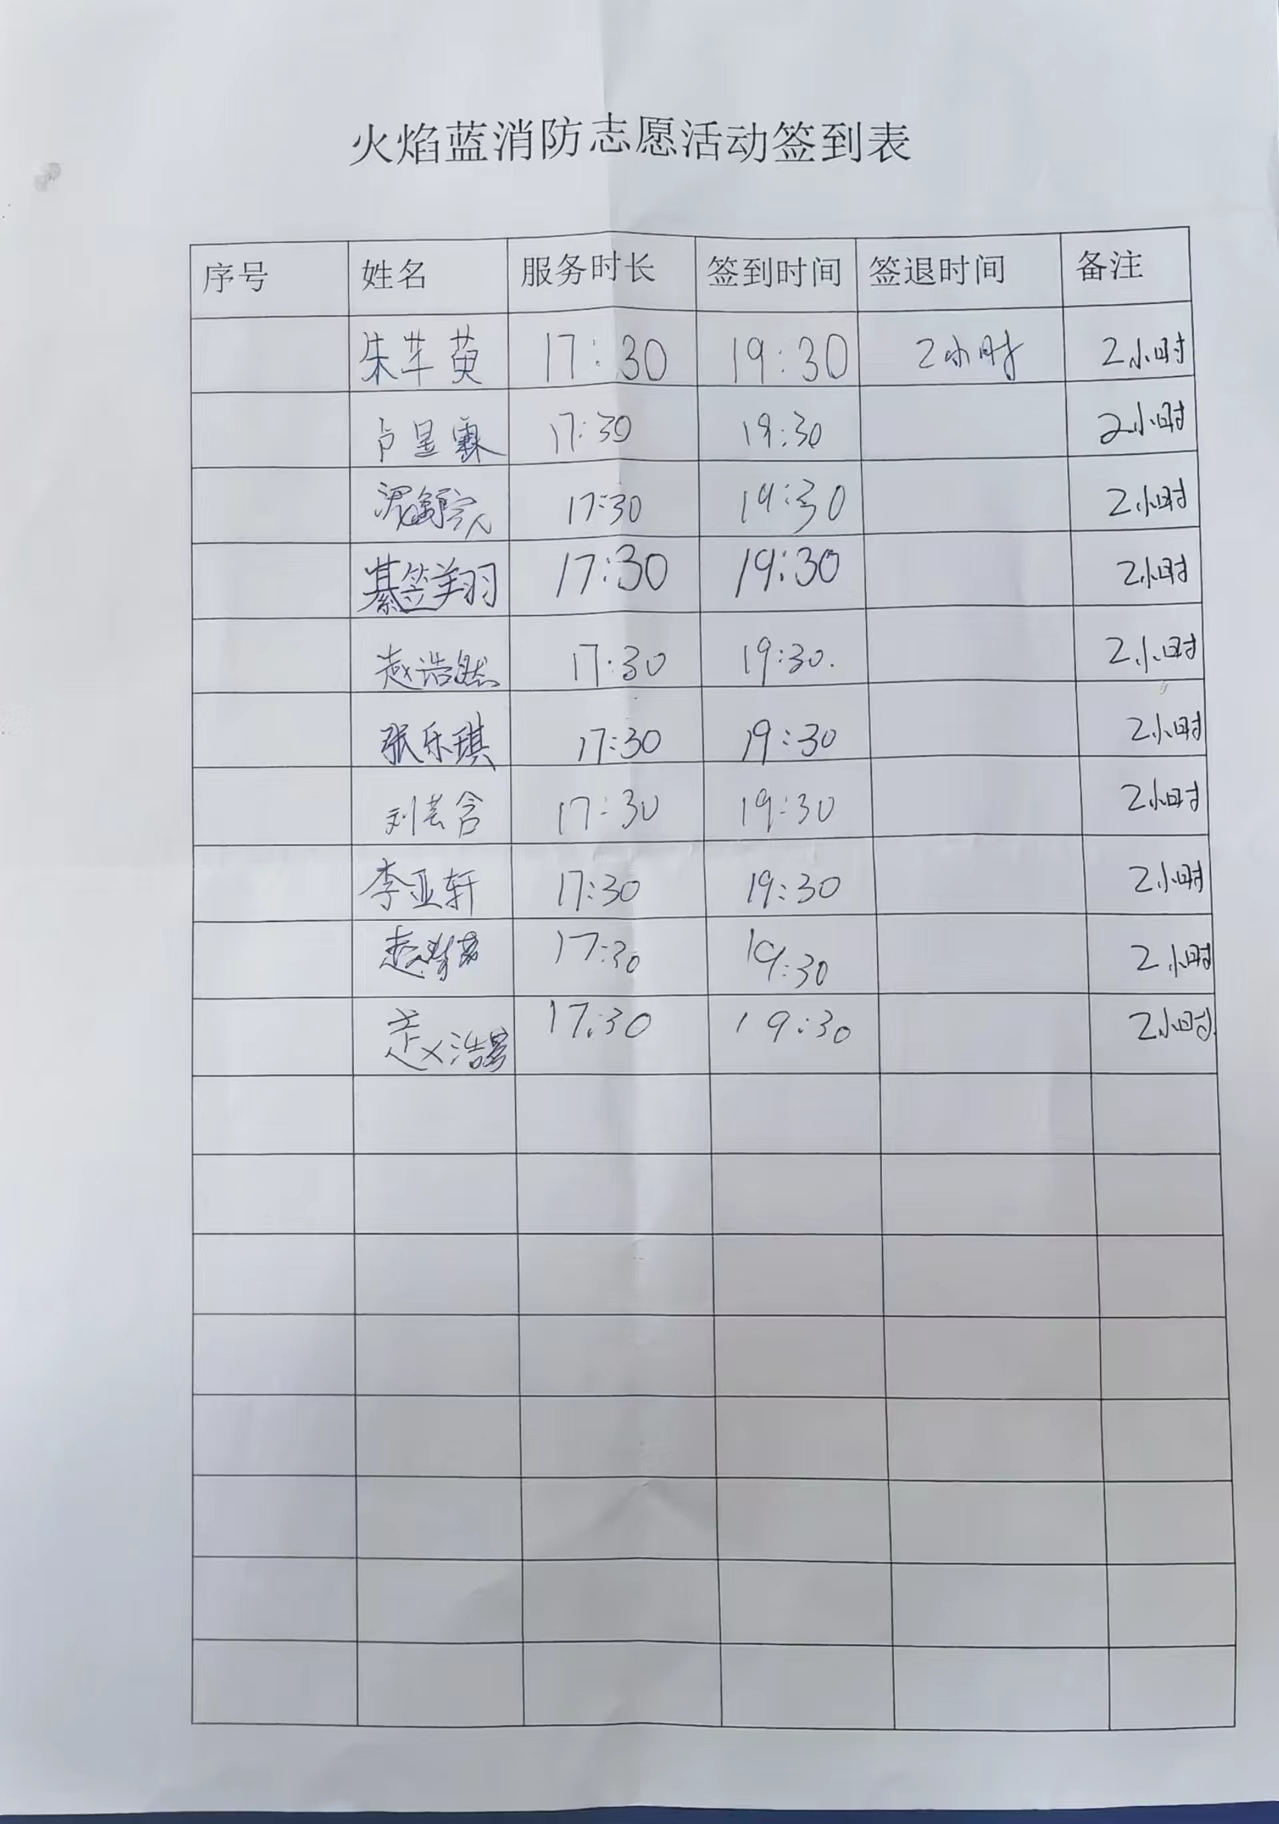 火焰蓝消防志愿活动签到表
序号 姓名 服务时长 签到时间 签退时间 备注
朱芊萸 17:30 19:30 2小时 2小时
卢昱霖 17:30 19:30 2小时
17:30 19:30 2小时
綦笠翔 17:30 19:30 2小时
赵浩然 17:30 19:30. 2小时
张乐琪 17:30 19:30 2小时
刘芸含 17:30 19:30 2小时
李亚轩 17:30 19:30 2小时
17:30 19:30 2小时
17:30 19:30 2小时